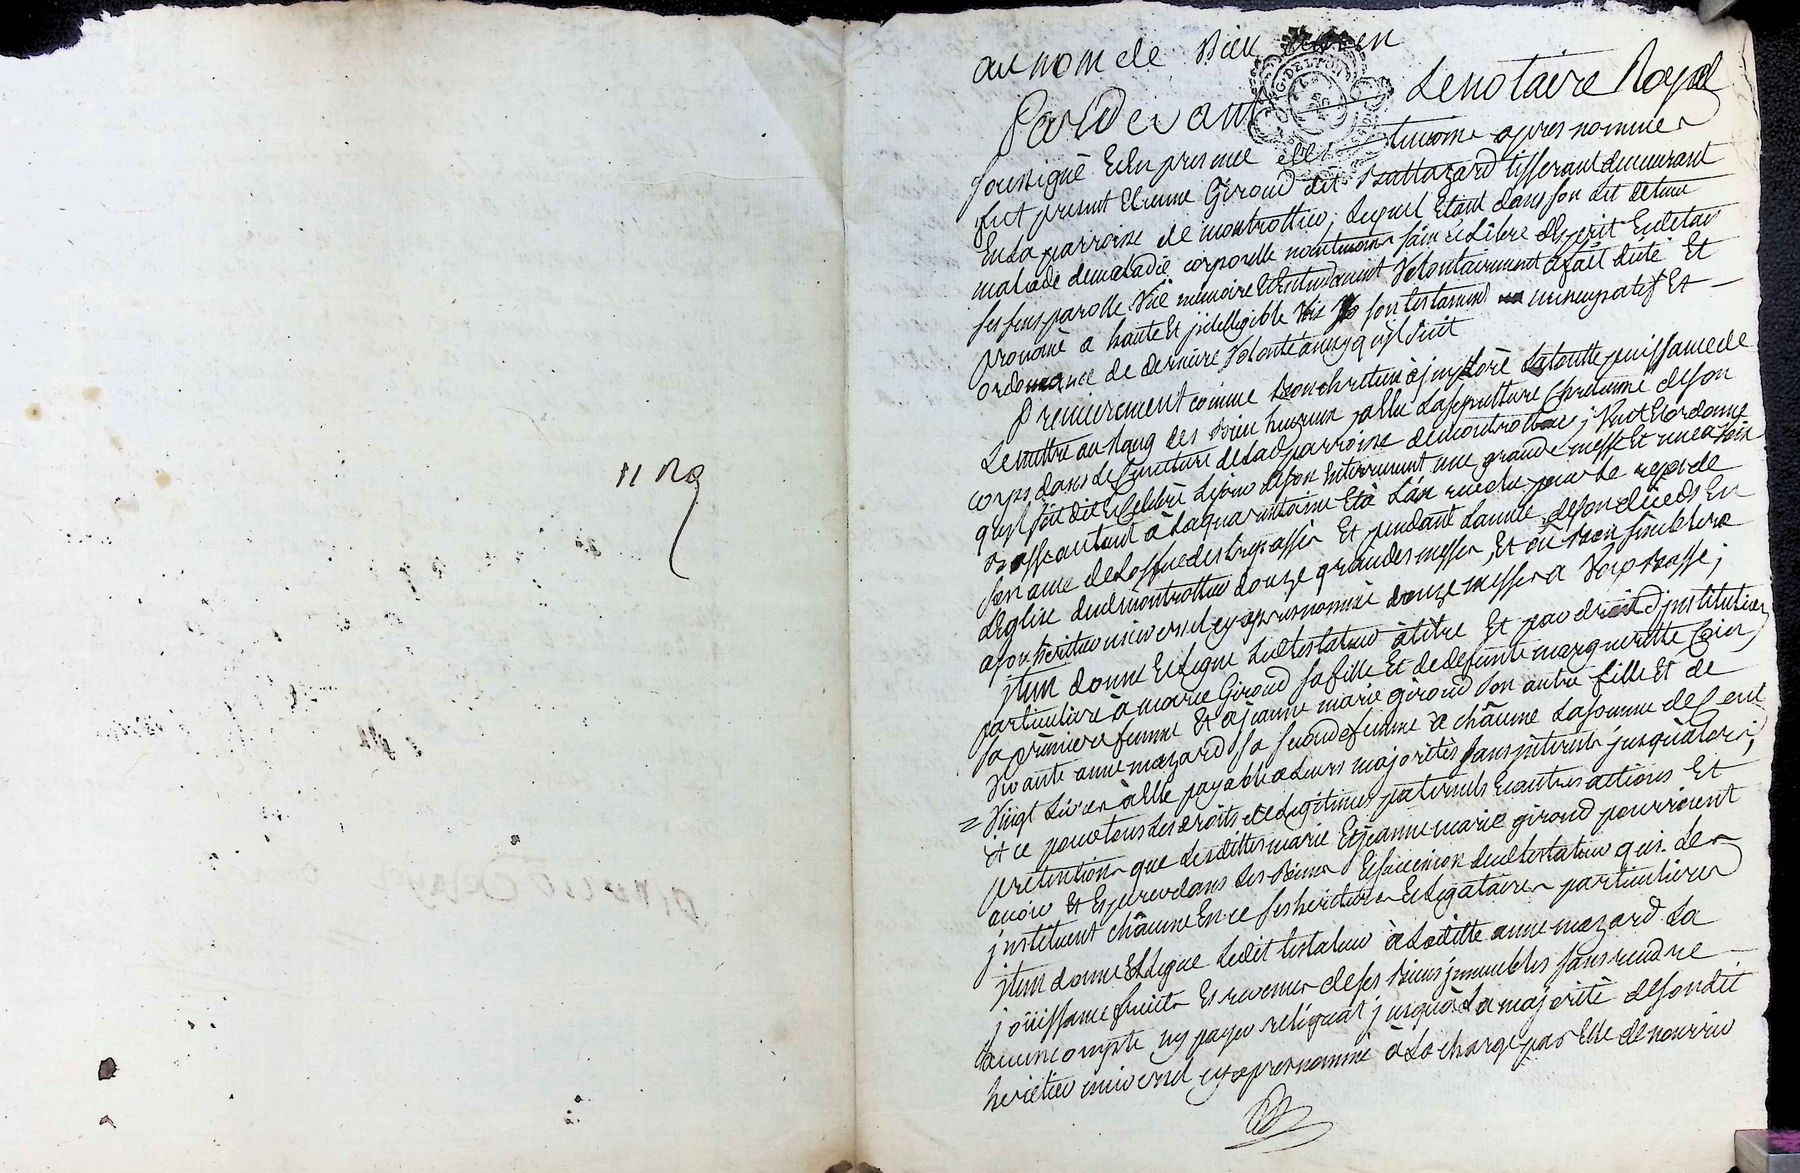 au nom de Dieu amen
Pardevant Le notaire Royal
soussigné Et en presence des temoins apres nommés
fut present Etienne Giroud dit Baltazard tisserant demeurant
En La parroisse de montrottier, Lequel Etant dans son Lit detenu
malade de maladie corporelle neantmoins sain et Libre d'esprit En de tous
ses sens parolle Vüe memoire Et Entendement Volontairement a fait dicté Et
prononcé a haute Et jntelligible Voix son testament nuncupatif Et
ordonnance de derniere Volonté ainsy qu'il suit
Premierement comme bon chretien a jmploré La toutte puissance de
Le mettre au Rang des bien heureux a Elu La sepulture Chretienne de son
corps dans Le Cimetiere de Lad parroisse de montrottier ; Veut Et ordonne
qu'il soit dit Et Celebré Le jour de son Enterrement une grande messe Et une a voix
basse autant à La quarantaine Et à L'an revolu pour Le repos de
son ame de Loffice des trepassés Et pendant L'année de son decéds En
L'eglise dud montrottier douze grandes messes, Et où bon semblera
a son heritier universel cy apres nommé douze messes a Voix basse ;
jtem donne Et Legue Led testateur à titre Et par droit d'jnstitution
particuliere à marie Giroud sa fille Et de deffunte margueritte
sa premiere femme Et a jeanne marie giroud son autre fille Et de
Vivante anne mazard sa seconde femme à châcune La somme de Cent
Vingt Livres à Elle payable a Leurs majorités sans jnterests jusqu'alors ;
Et ce pour tous Les droits de Legitimes paternels Et autres actions Et
pretentions que Lesdittes marie Et jeanne marie giroud pourroient
avoir Et Esperer dans Les biens Et succession dud testateur qui Les
jnstituent châcune En ce ses heritieres Et Legataires particulieres
jtem donne Et Legue Ledit testateur à Laditte anne mazard La
joüissance fruits Et revenus de ses biens jmmeubles sans rendre
aucun compte ny payer reliquat jusqu'à La majorité de sondit
heritier universel cy apres nommé à La charge par Elle de nourrir